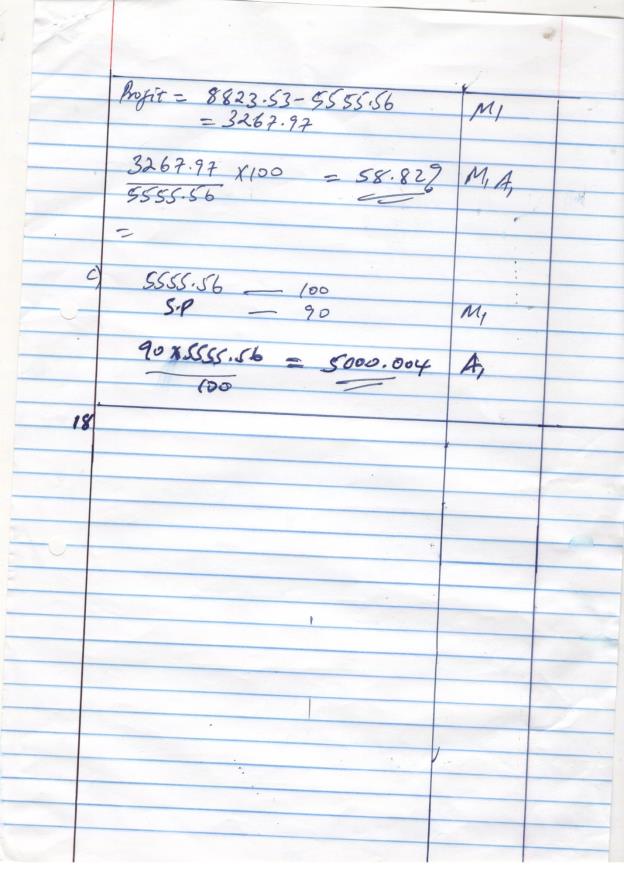 Profit = 8823.53 - 5555.56 M1
= 3267.97
3267.97 × 100 = 58.82% M1 A1
5555.56
=
c) 5555.56 — 100
S.P — 90 M1
90 × 5555.56 = 5000.004 A1
100
18